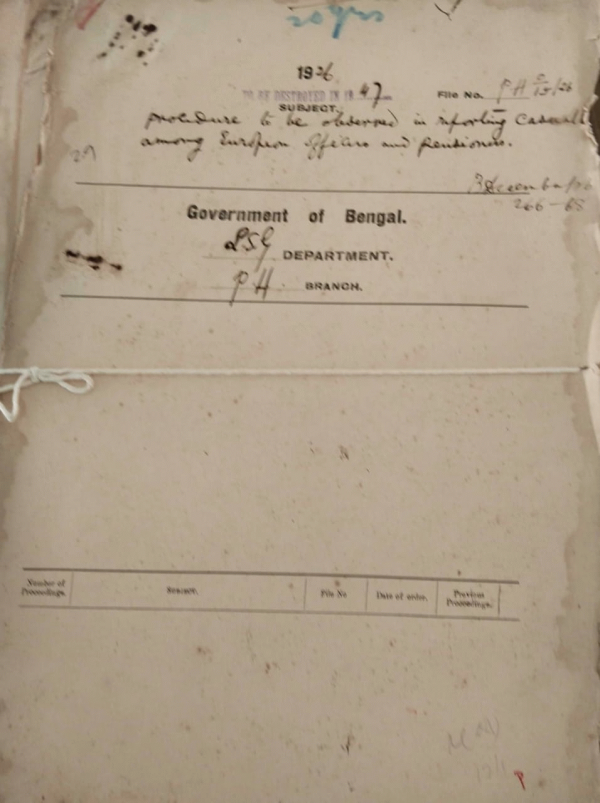 20 yrs
1926
TO BE DESTROYED IN 1947
File No. PH
SUBJECT.
procedure to be observed in reporting
among European officers and pensioners.
29
December/26
266-68
Government of Bengal.
LSG DEPARTMENT.
PH BRANCH.
Number of Proceedings. SUBJECT. File No Date of order. Previous Proceedings.